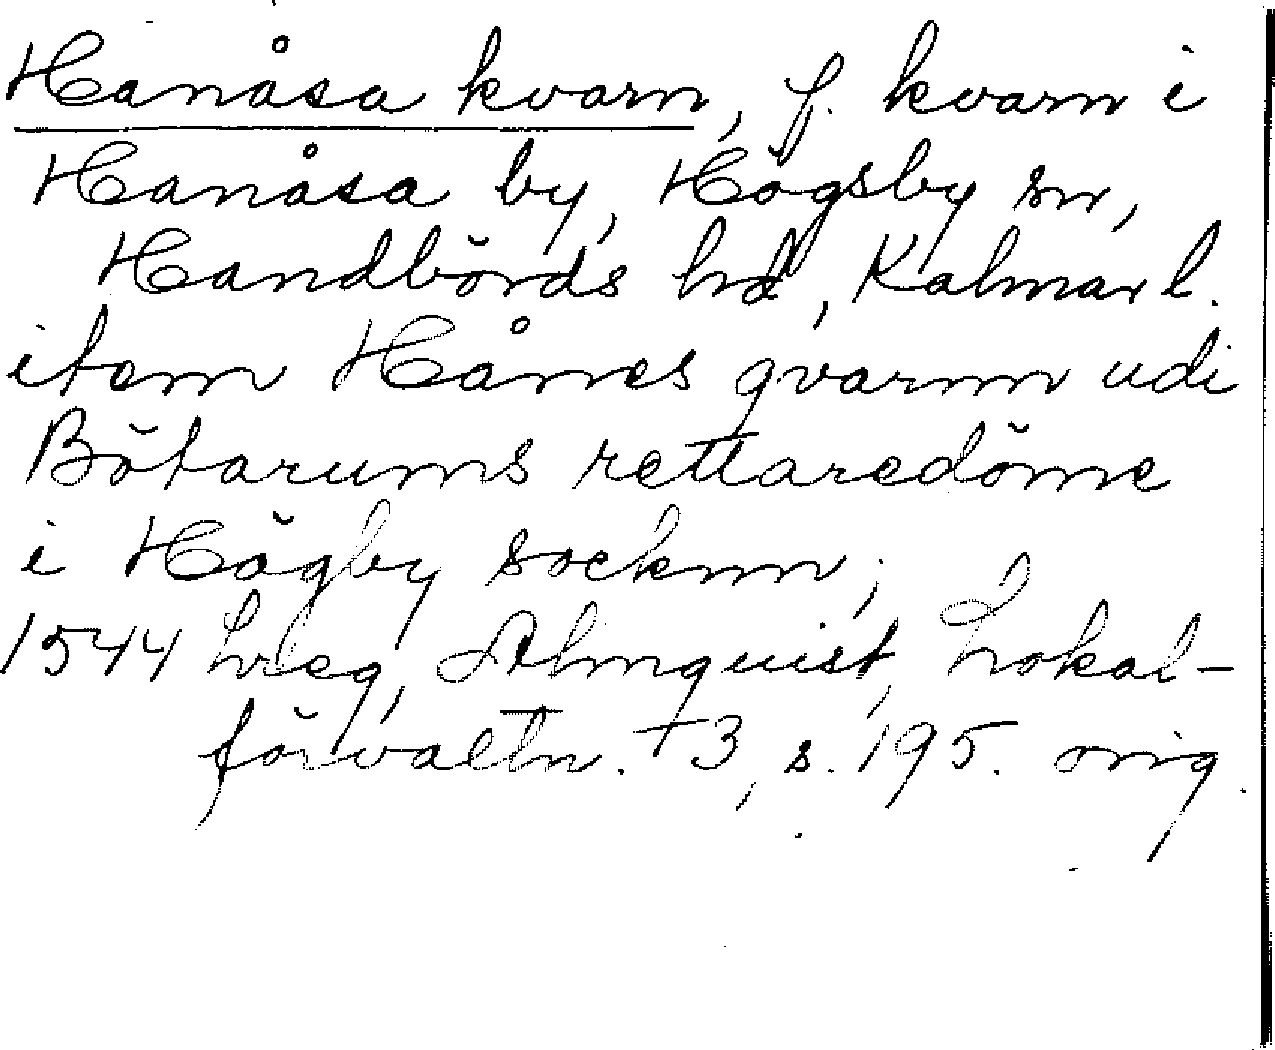 Hanåsa kvarn, f. kvarn i
Hanåsa by, Högsby sn,
Handbörds hd, Kalmar l.
item Hånes qvarnn udi
Bötarums rettaredöme
i Högby socknn;
1544 Lreg, Almquist, Lokal-
förvaltn. +3, s. 195. orig.